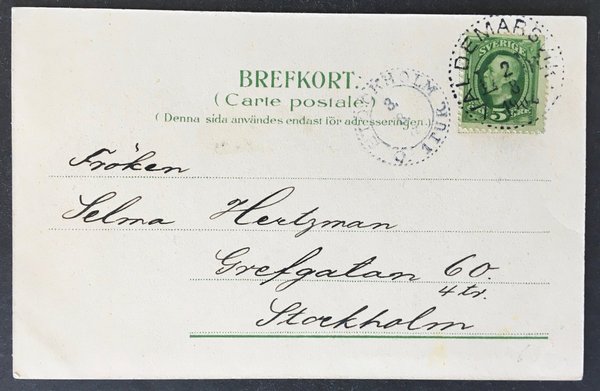 BREFKORT.
(Carte postale.)
(Denna sida användes endast för adresseringen.)
SVERIGE
5
Fröken
Selma Hertzman
Grefgatan 60.
4 tr.
Stockholm